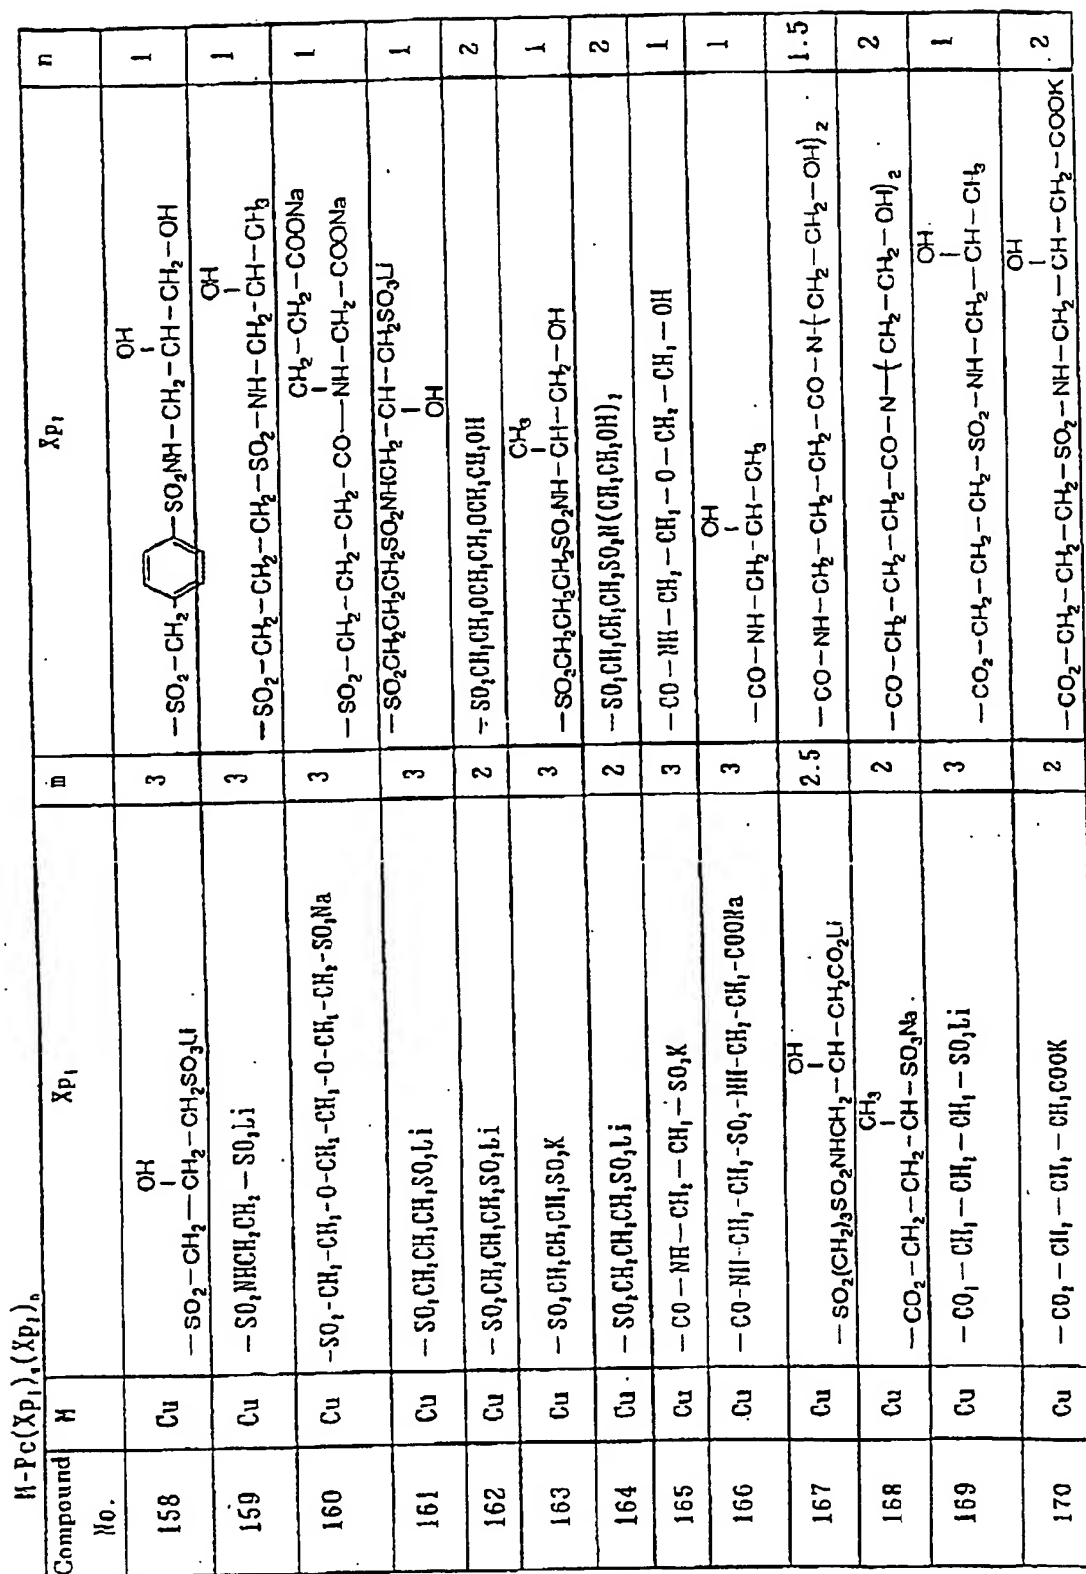 M-Pc(Xp₁)ₘ(Xp₁)ₙ
Compound No. M Xp₁ m Xp₁ n
OH OH
158 Cu —SO₂—CH₂—CH₂—CH₂SO₃Li 3 —SO₂—CH₂— —SO₂NH—CH₂—CH—CH₂—OH 1
OH
159 Cu —SO₂NHCH₂CH₂—SO₃Li 3 —SO₂—CH₂—CH₂—CH₂—SO₂—NH—CH₂—CH—CH₃ 1
CH₂—CH₂—COONa
160 Cu —SO₂-CH₂-CH₂-O-CH₂-CH₂-O-CH₂-CH₂-SO₃Na 3 —SO₂—CH₂—CH₂—CH₂—CO—NH—CH₂—COONa 1
161 Cu —SO₂CH₂CH₂CH₂SO₃Li 3 —SO₂CH₂CH₂CH₂SO₂NHCH₂—CH—CH₂SO₃Li 1
OH
162 Cu —SO₂CH₂CH₂CH₂SO₃Li 2 —SO₂CH₂CH₂OCH₂CH₂OCH₂CH₂OH 2
CH₃
163 Cu —SO₂CH₂CH₂CH₂SO₃K 3 —SO₂CH₂CH₂CH₂SO₂NH—CH—CH₂—OH 1
164 Cu —SO₂CH₂CH₂CH₂SO₃Li 2 —SO₂CH₂CH₂CH₂SO₂N(CH₂CH₂OH)₂ 2
165 Cu —CO—NH—CH₂—CH₂—SO₃K 3 —CO—NH—CH₂—CH₂—O—CH₂—CH₂—OH 1
OH
166 Cu —CO-NH-CH₂-CH₂-SO₂-NH-CH₂-CH₂-COONa 3 —CO—NH—CH₂—CH—CH₃ 1
OH
167 Cu —SO₂(CH₂)₃SO₂NHCH₂—CH—CH₂CO₂Li 2.5 —CO—NH—CH₂—CH₂—CH₂—CO—N—(CH₂—CH₂—OH)₂ 1.5
CH₃
168 Cu —CO₂—CH₂—CH₂—CH—SO₃Na 2 —CO—CH₂—CH₂—CH₂—CO—N—(CH₂—CH₂—OH)₂ 2
OH
169 Cu —CO₂—CH₂—CH₂—CH₂—SO₃Li 3 —CO₂—CH₂—CH₂—CH₂—SO₂—NH—CH₂—CH—CH₃ 1
OH
170 Cu —CO₂—CH₂—CH₂—CH₂COOK 2 —CO₂—CH₂—CH₂—CH₂—SO₂—NH—CH₂—CH—CH₂—COOK 2